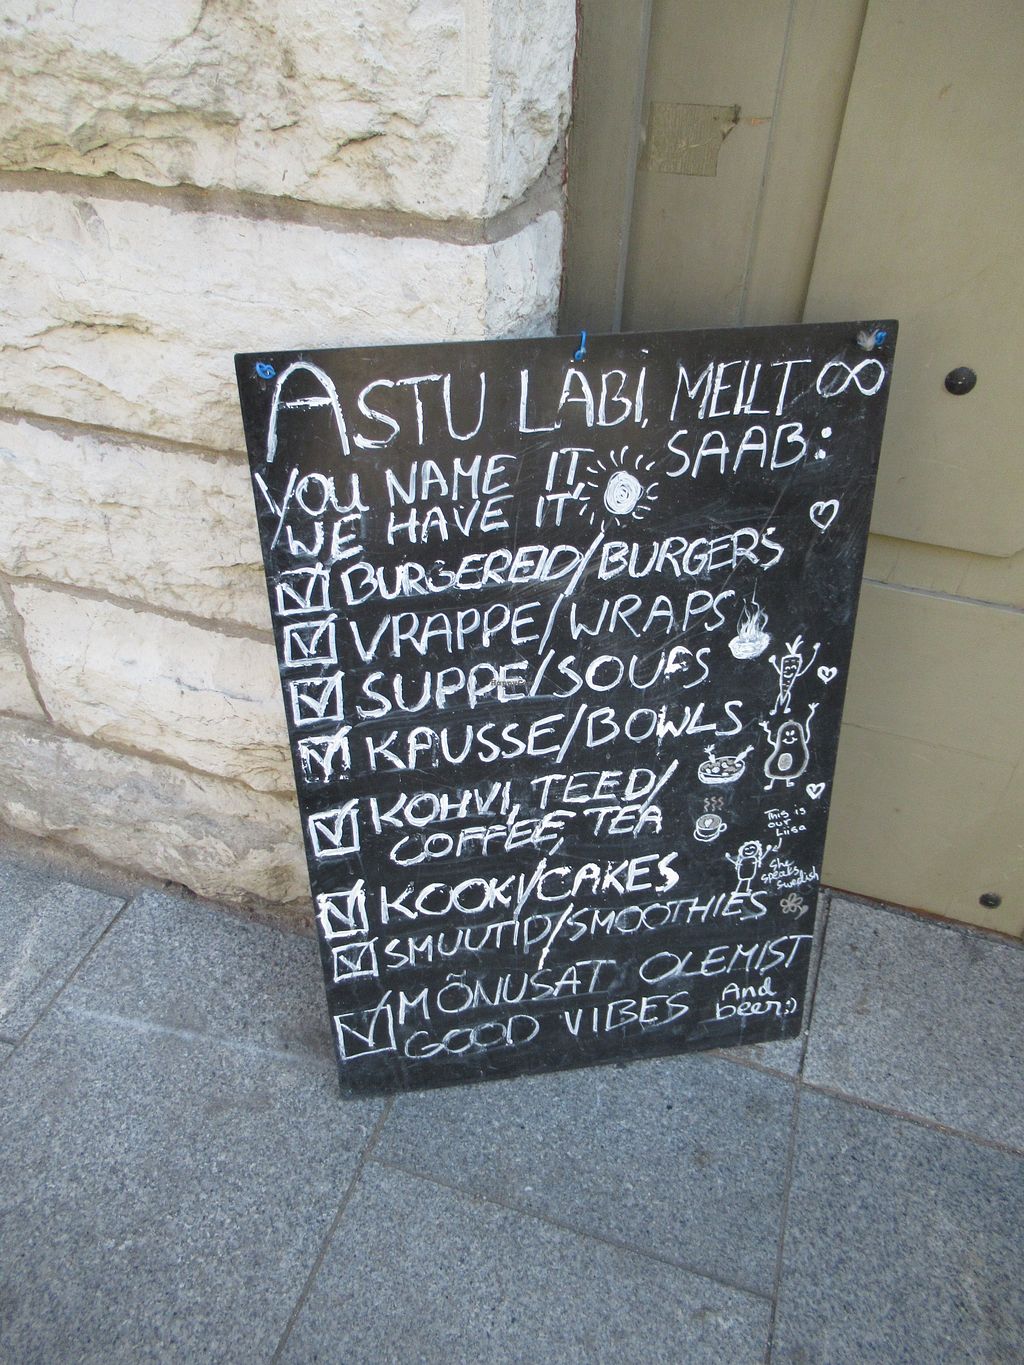 ASTU LABI, MEILT ∞
SAAB:
YOU NAME IT,
WE HAVE IT
BURGEREID/BURGERS
VRAPPE/WRAPS
SUPPE/SOUPS
KAUSSE/BOWLS
KOHVI, TEED/
COFFEE, TEA
This is
our
Liisa
She
speaks
Swedish
KOOKI/CAKES
SMUUTID/SMOOTHIES
MÕNUSAT OLEMIST
GOOD VIBES
And
beer:)